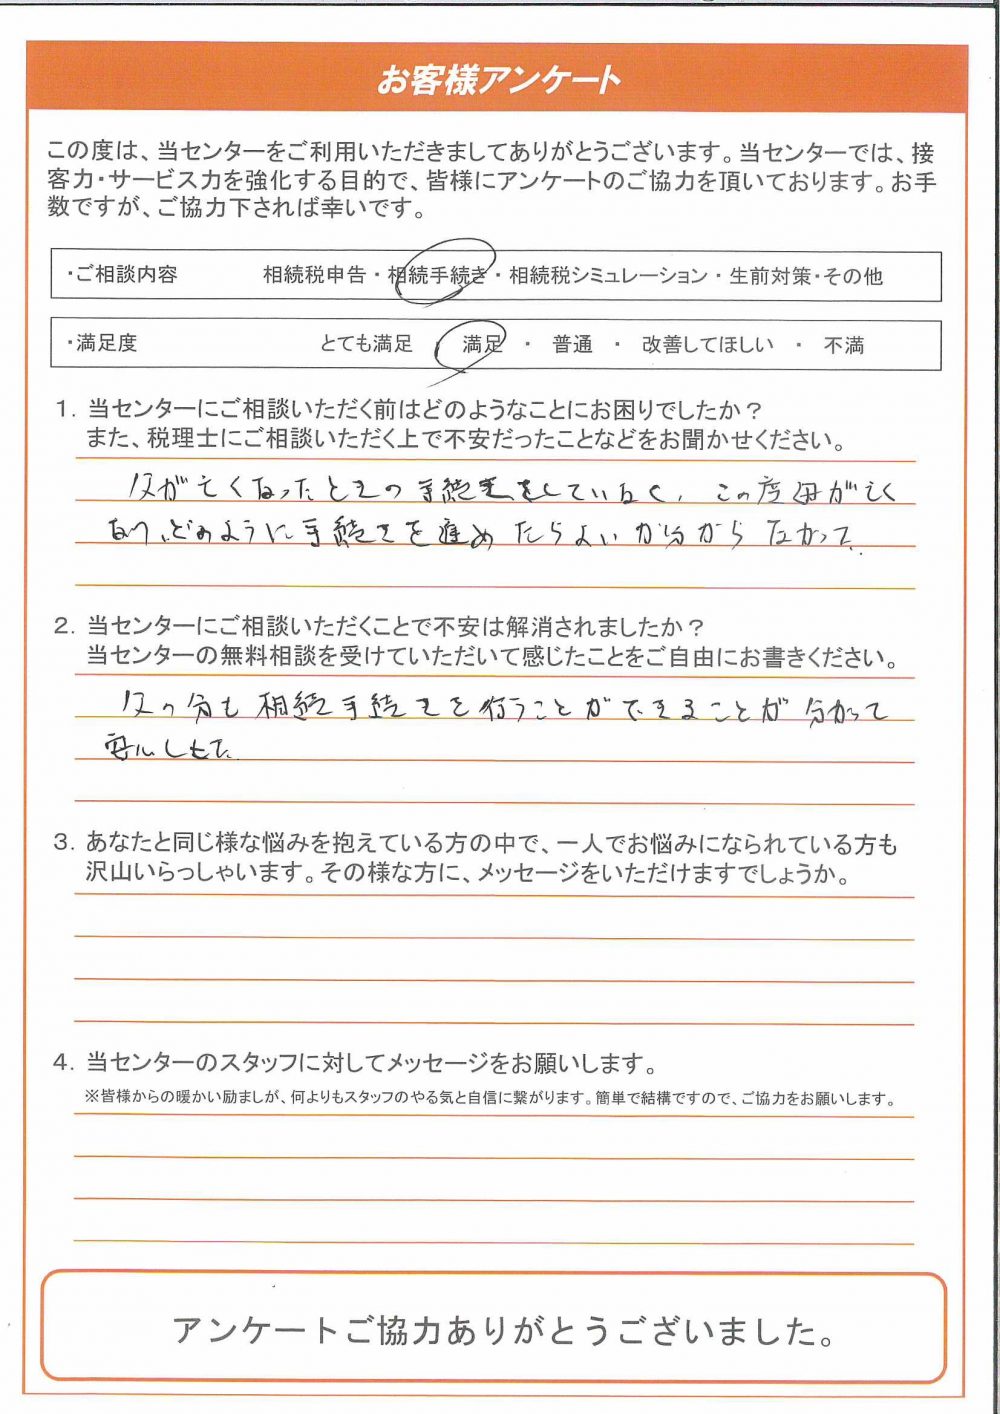 お客様アンケート
この度は、当センターをご利用いただきましてありがとうございます。当センターでは、接
客力・サービス力を強化する目的で、皆様にアンケートのご協力を頂いております。お手
数ですが、ご協力下されば幸いです。
・ご相談内容 相続税申告・相続手続き・相続税シミュレーション・生前対策・その他
・満足度 とても満足 ・ 満足 ・ 普通 ・ 改善してほしい ・ 不満
1. 当センターにご相談いただく前はどのようなことにお困りでしたか？
また、税理士にご相談いただく上で不安だったことなどをお聞かせください。
父が亡くなったときの手続きをしていなく、この度母が亡く
なり、どのように手続きを進めたらよいか分からなかった。
2. 当センターにご相談いただくことで不安は解消されましたか？
当センターの無料相談を受けていただいて感じたことをご自由にお書きください。
父の分も相続手続きを行うことができることが分かって
安心した
3. あなたと同じ様な悩みを抱えている方の中で、一人でお悩みになられている方も
沢山いらっしゃいます。その様な方に、メッセージをいただけますでしょうか。
4. 当センターのスタッフに対してメッセージをお願いします。
※皆様からの暖かい励ましが、何よりもスタッフのやる気と自信に繋がります。簡単で結構ですので、ご協力をお願いします。
アンケートご協力ありがとうございました。